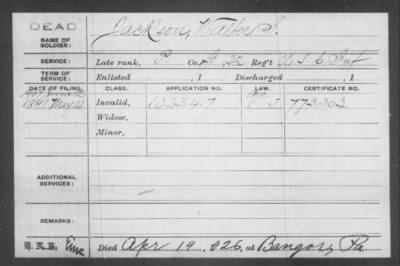 DEAD
NAME OF SOLDIER:
Jackson, Walter S.
SERVICE:
Late rank, P. Co. A, 32 Reg't U S C Inf
TERM OF SERVICE:
Enlisted , 1 Discharged , 1
DATE OF FILING. CLASS. APPLICATION NO. LAW. CERTIFICATE NO.
1891 May Invalid, 1023417 J. 773503
Widow,
Minor,
ADDITIONAL SERVICES:
REMARKS:
Died Apr 19, 1926, at Bangor, Pa